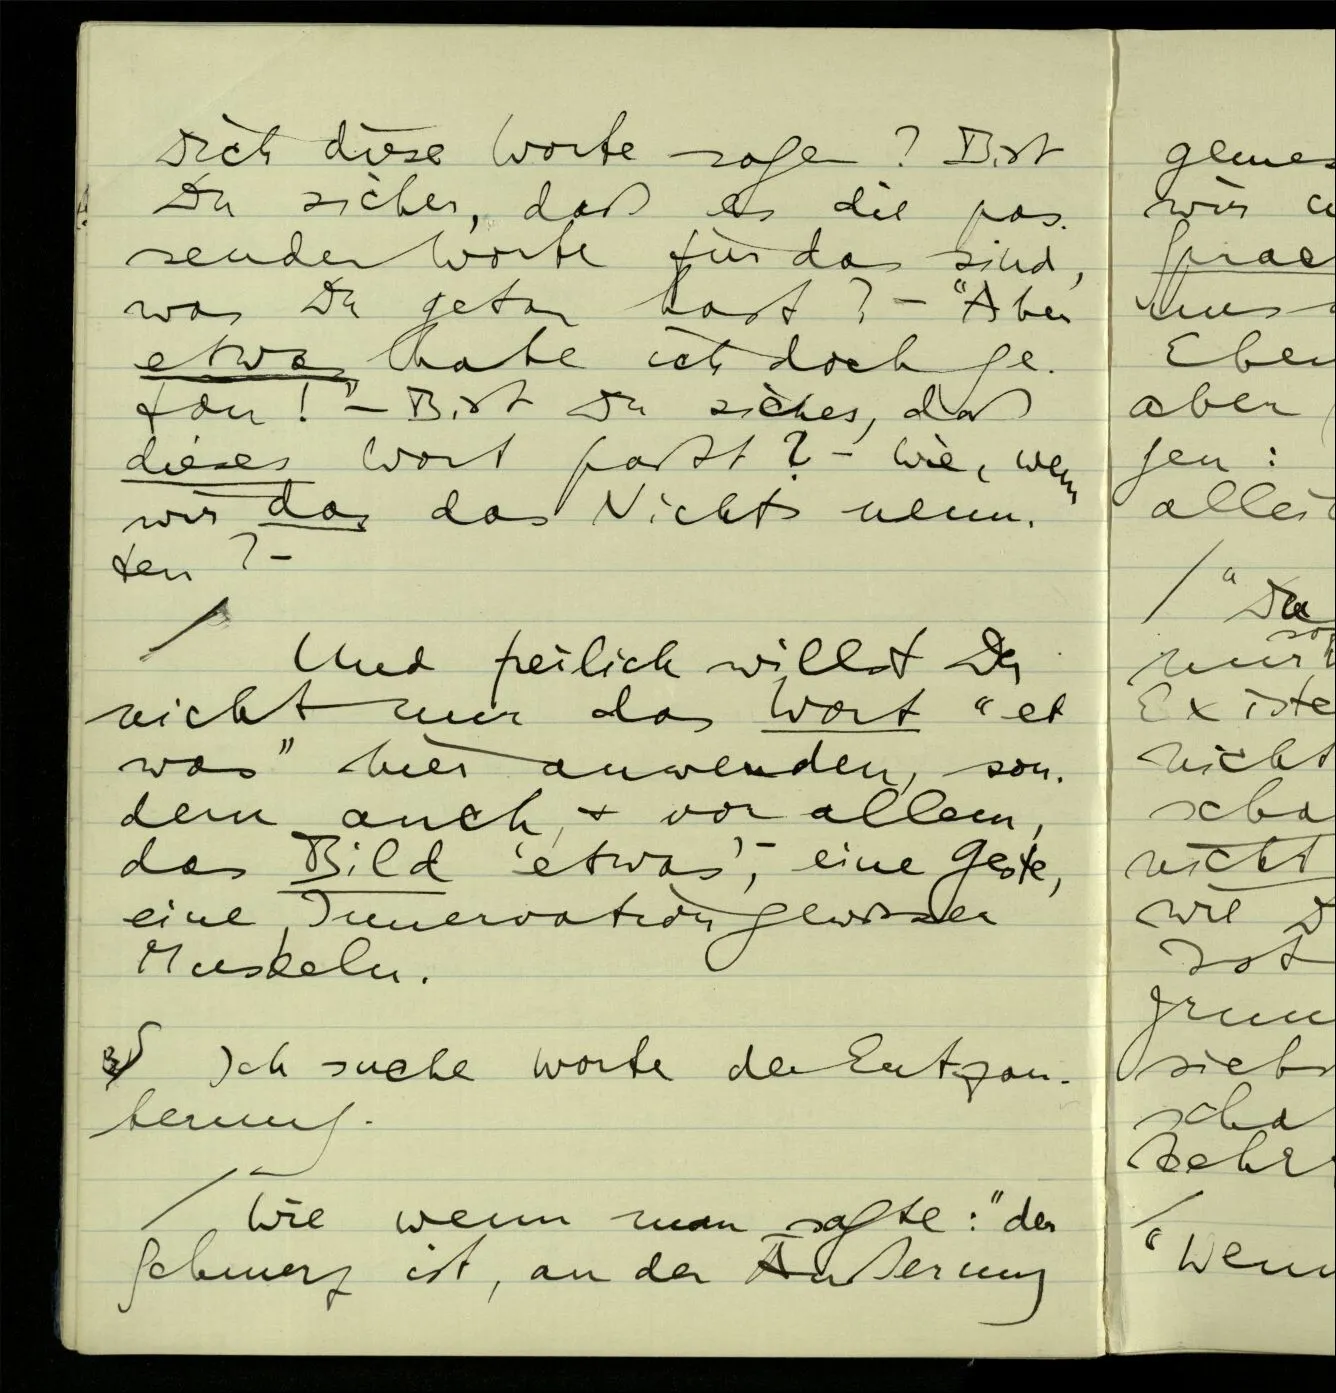 Dich diese Worte sagen? Bist
Du sicher, daß es die pas-
senden Worte für das sind,
was Du getan hast? – "Aber
etwas habe ich doch ge-
tan!" – Bist Du sicher, daß
dieses Wort paßt? – Wie, wenn
wir das das Nichts nenn-
ten? –
/ Und freilich willst Du
nicht nur das Wort "et
was" hier anwenden, son-
dern auch, + vor allem,
das Bild 'etwas', – eine Geste,
eine Innervation gewisser
Muskeln.
Ich suche Worte der Entzau-
berung.
/ Wie wenn man sagte: "der
Schmerz ist, an der Äußerung
gemes
wir
Sprac
uns
Eben
aber
gen:
allei
/ "Du
nur
Existe
nicht
scha
nicht
wie D
Ist
grun
sieh
scha
/
"Wenn